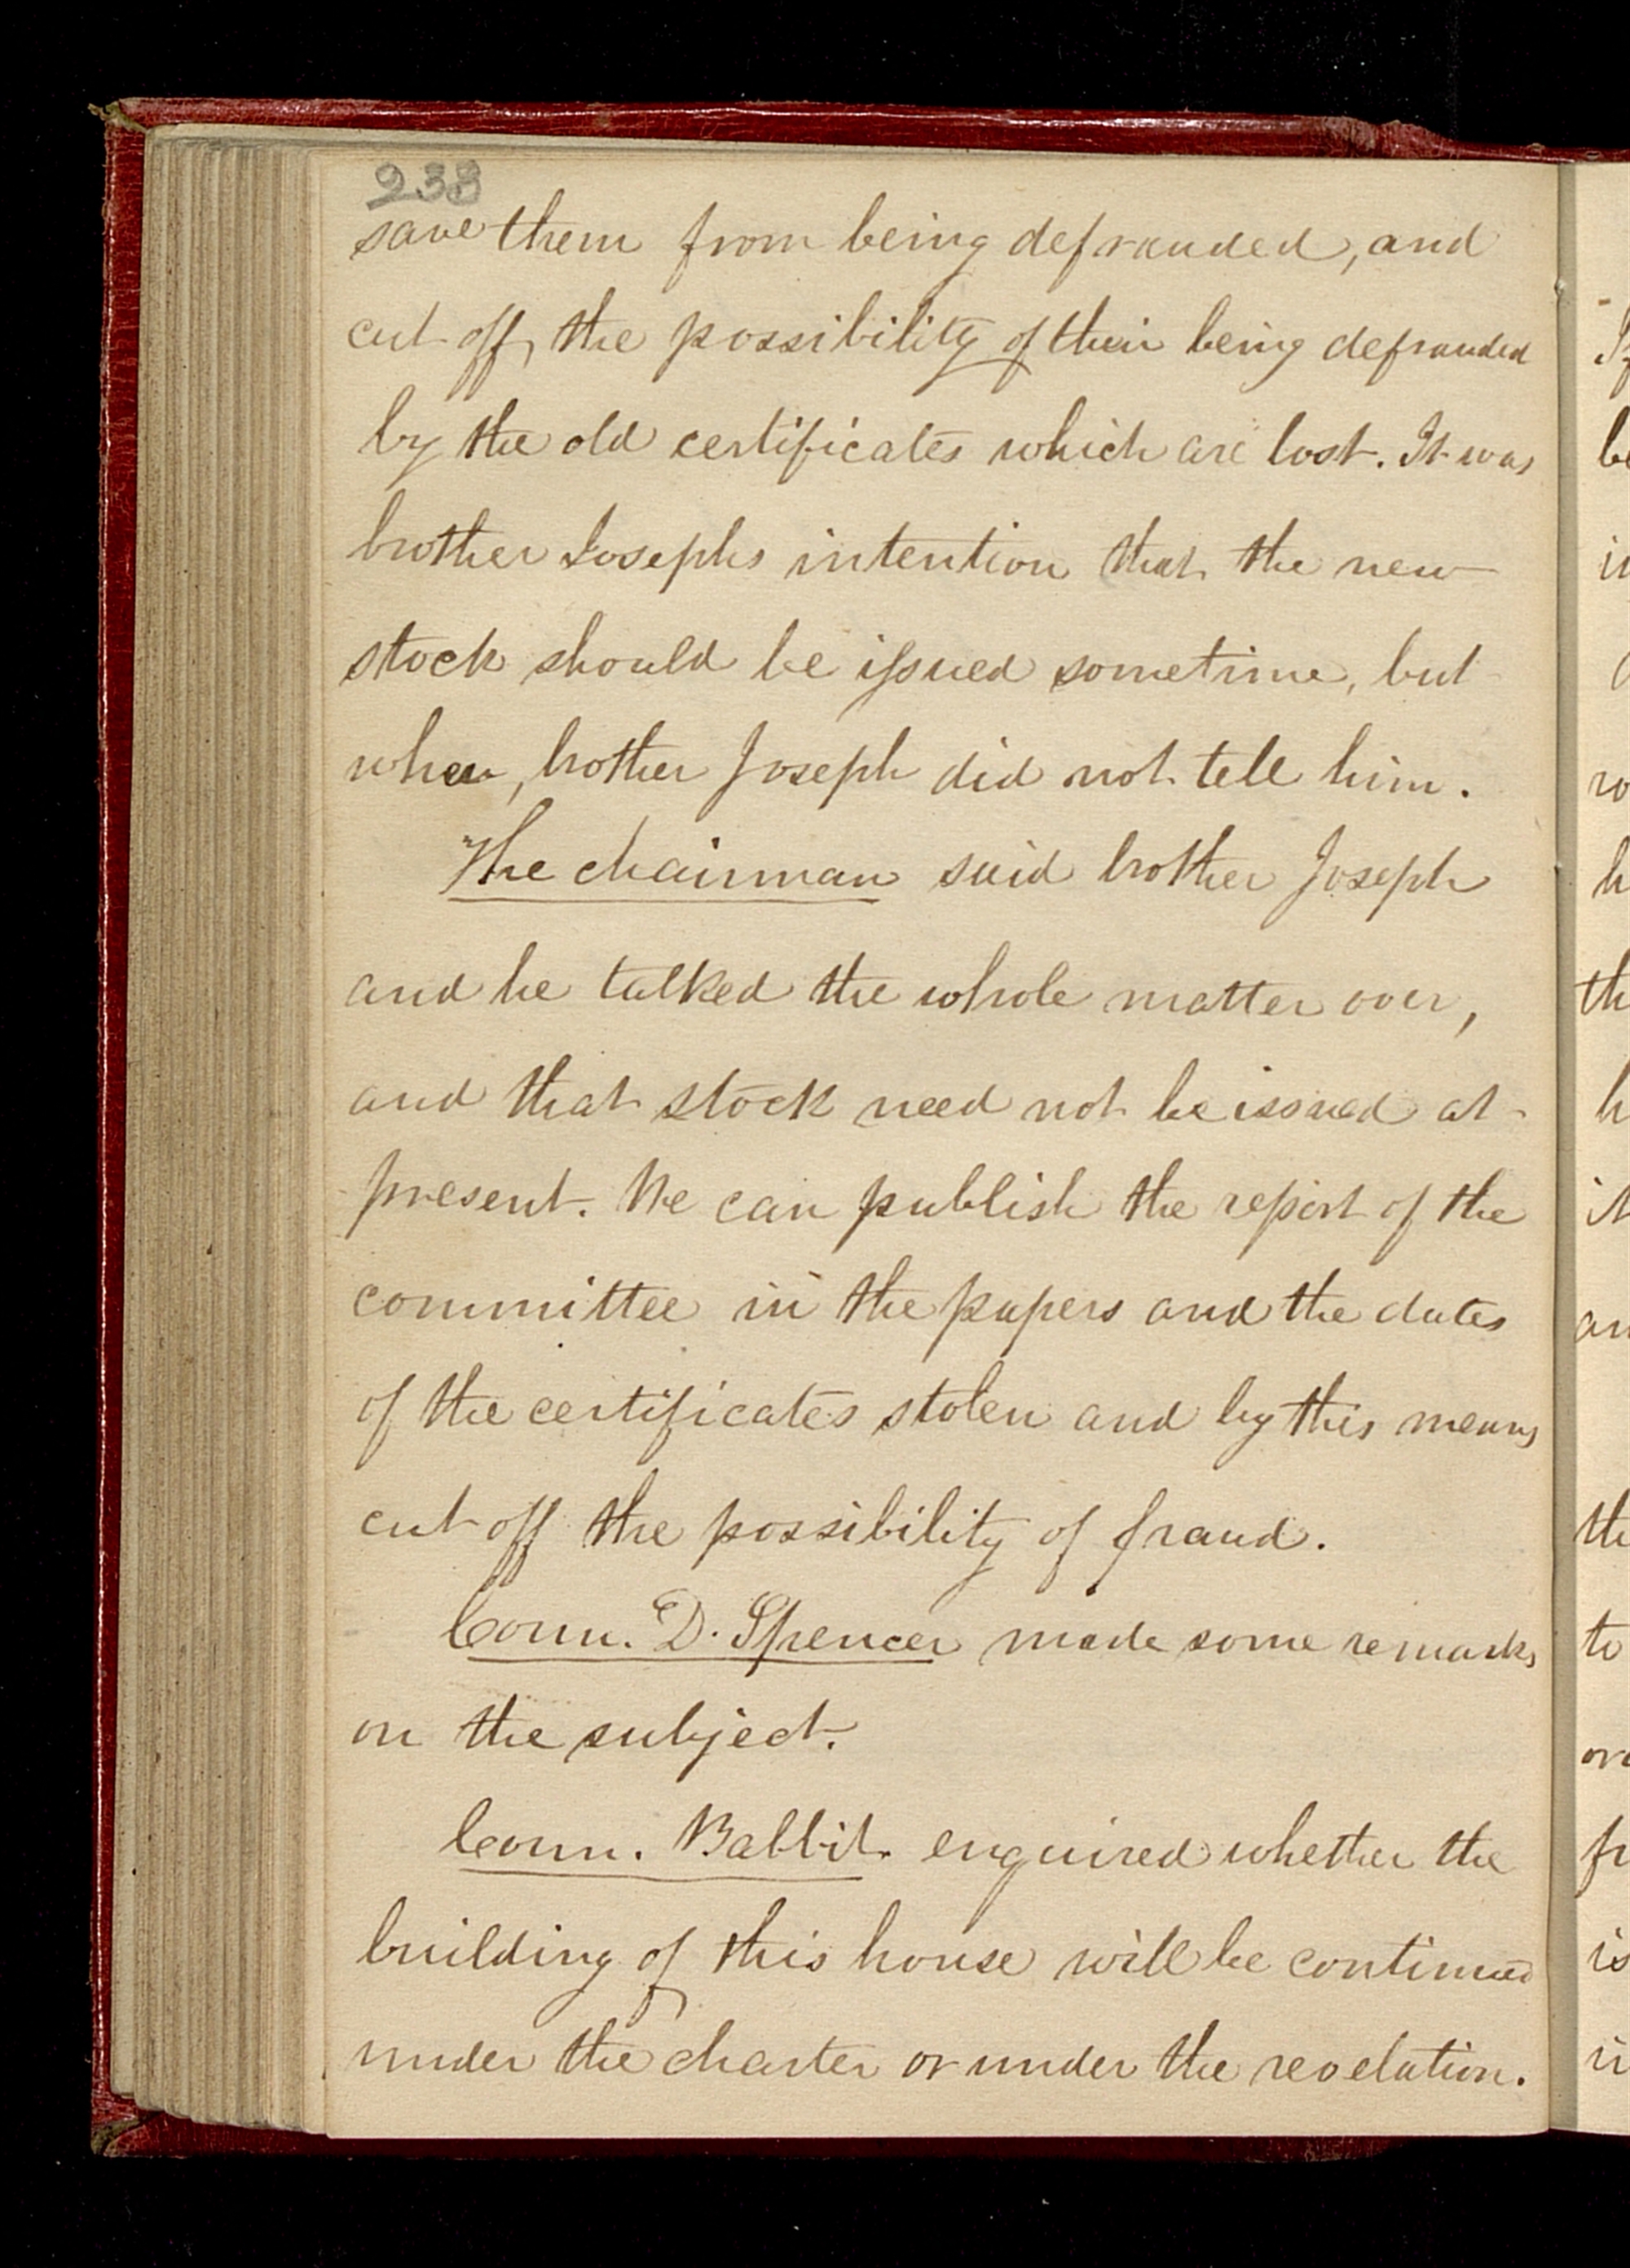 238
save them from being defrauded, and
cut off, the possibility of their being defrauded
by the old certificates which are lost. It was
brother Josephs intention that the new
stock should be issued sometime, but
when, brother Joseph did not tell him.
The chairman said brother Joseph
and he talked the whole matter over,
and that stock need not be issued at
present. We can publish the report of the
committee in the papers and the dates
of the certificates stolen and by this means
cut off the possibility of fraud.
Coun. D. Spencer made some remarks
on the subject.
Coun. Babbit enquired whether the
building of this house will be continued
under the charter or under the revelation.